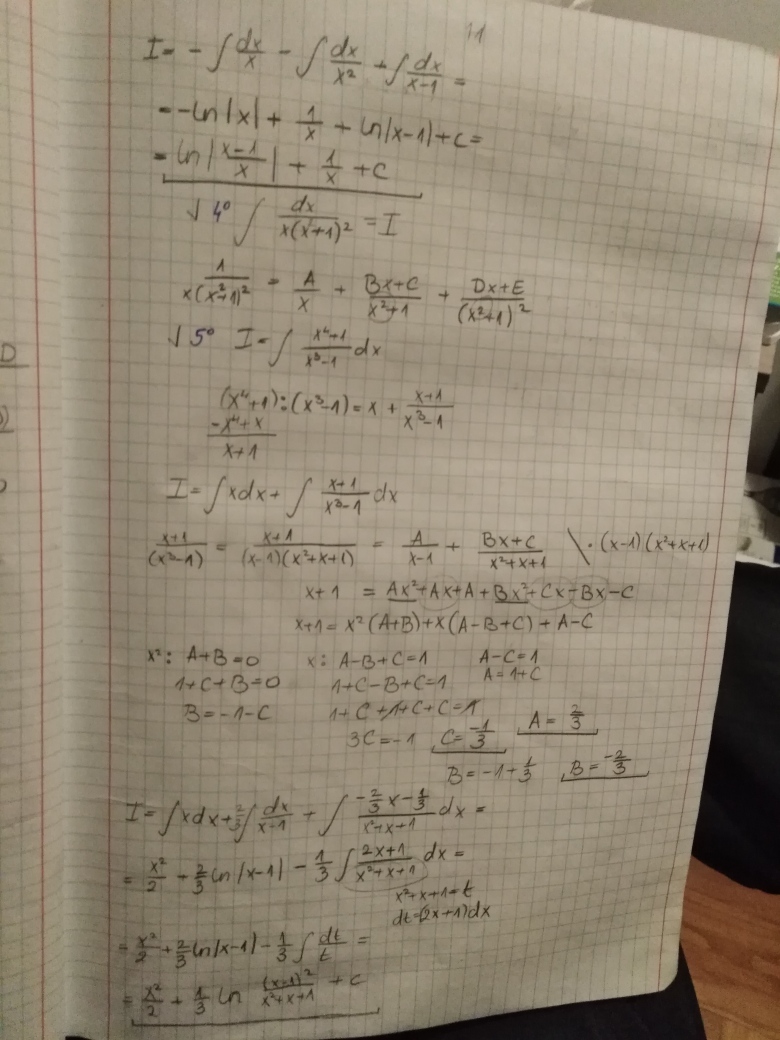 11
I = - ∫ dx/x - ∫ dx/x² + ∫ dx/x-1 =
= -ln|x| + 1/x + ln|x-1| + C =
= ln|x-1/x| + 1/x + C
√ 4° ∫ dx/x(x²+1)² = I
1/x(x²+1)² = A/x + Bx+C/x²+1 + Dx+E/(x²+1)²
√ 5° I = ∫ x⁴+1/x³-1 dx
(x⁴+1):(x³-1) = x + x+1/x³-1
-x⁴+x
x+1
I = ∫xdx + ∫ x+1/x³-1 dx
x+1/(x³-1) = x+1/(x-1)(x²+x+1) = A/x-1 + Bx+C/x²+x+1 \ · (x-1)(x²+x+1)
x+1 = Ax²+Ax+A+Bx²+Cx-Bx-C
x+1 = x²(A+B)+x(A-B+C)+A-C
x²: A+B=0 x: A-B+C=1 A-C=1
1+C+B=0 1+C-B+C=1 A=1+C
B=-1-C 1+C+1+C+C=1 A=2/3
3C=-1 C=-1/3
B=-1+1/3 B=-2/3
I = ∫xdx + 2/3 ∫ dx/x-1 + ∫ -2/3x-1/3/x²+x+1 dx =
= x²/2 + 2/3 ln|x-1| - 1/3 ∫ 2x+1/x²+x+1 dx =
x²+x+1=t
dt=(2x+1)dx
= x²/2 + 2/3 ln|x-1| - 1/3 ∫ dt/t =
= x²/2 + 1/3 ln (x-1)²/x²+x+1 + C